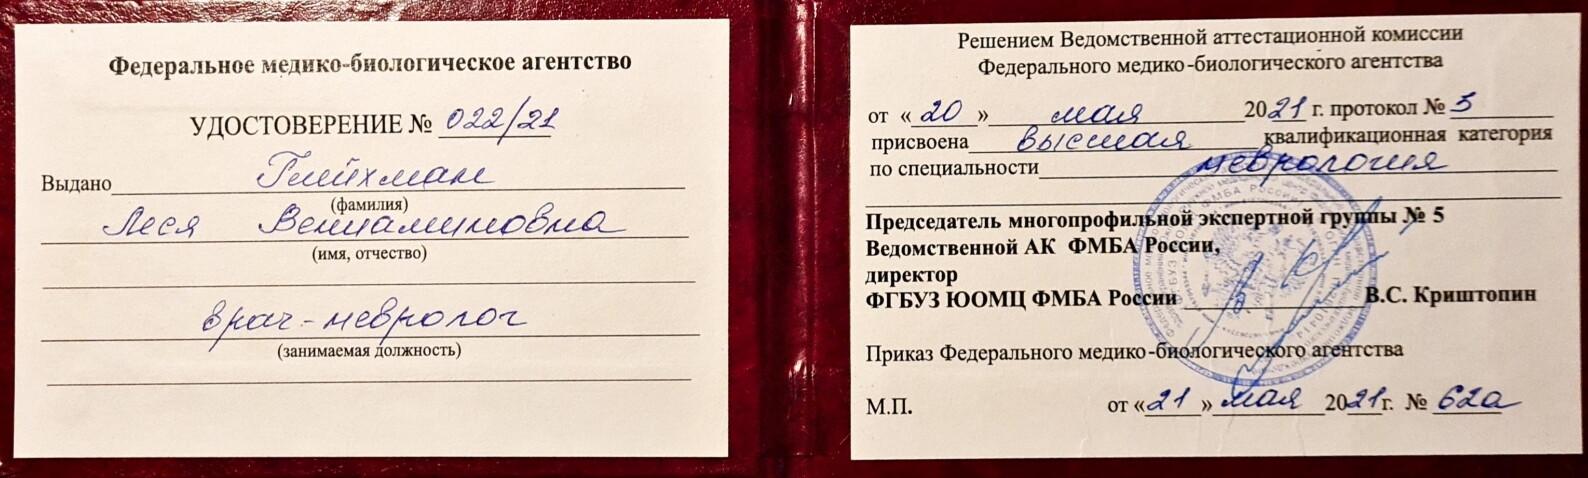 Федеральное медико-биологическое агентство
УДОСТОВЕРЕНИЕ № 022/21
Выдано Глейхман
(фамилия)
Леся Вениаминовна
(имя, отчество)
врач-невролог
(занимаемая должность)
Решением Ведомственной аттестационной комиссии
Федерального медико-биологического агентства
от «20» мая 2021 г. протокол № 5
присвоена высшая квалификационная категория
по специальности неврология
Председатель многопрофильной экспертной группы № 5
Ведомственной АК ФМБА России,
директор
ФГБУЗ ЮОМЦ ФМБА России В.С. Криштопин
Приказ Федерального медико-биологического агентства
М.П. от «21» мая 2021г. № 62а